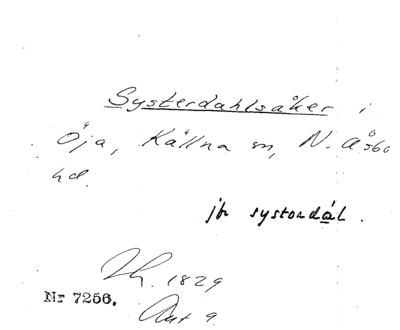 Systerdahlsåker i
Öja, Källna sn, N. Åsbo
hd.
jfr systerdal.
1829
Nr 7256.